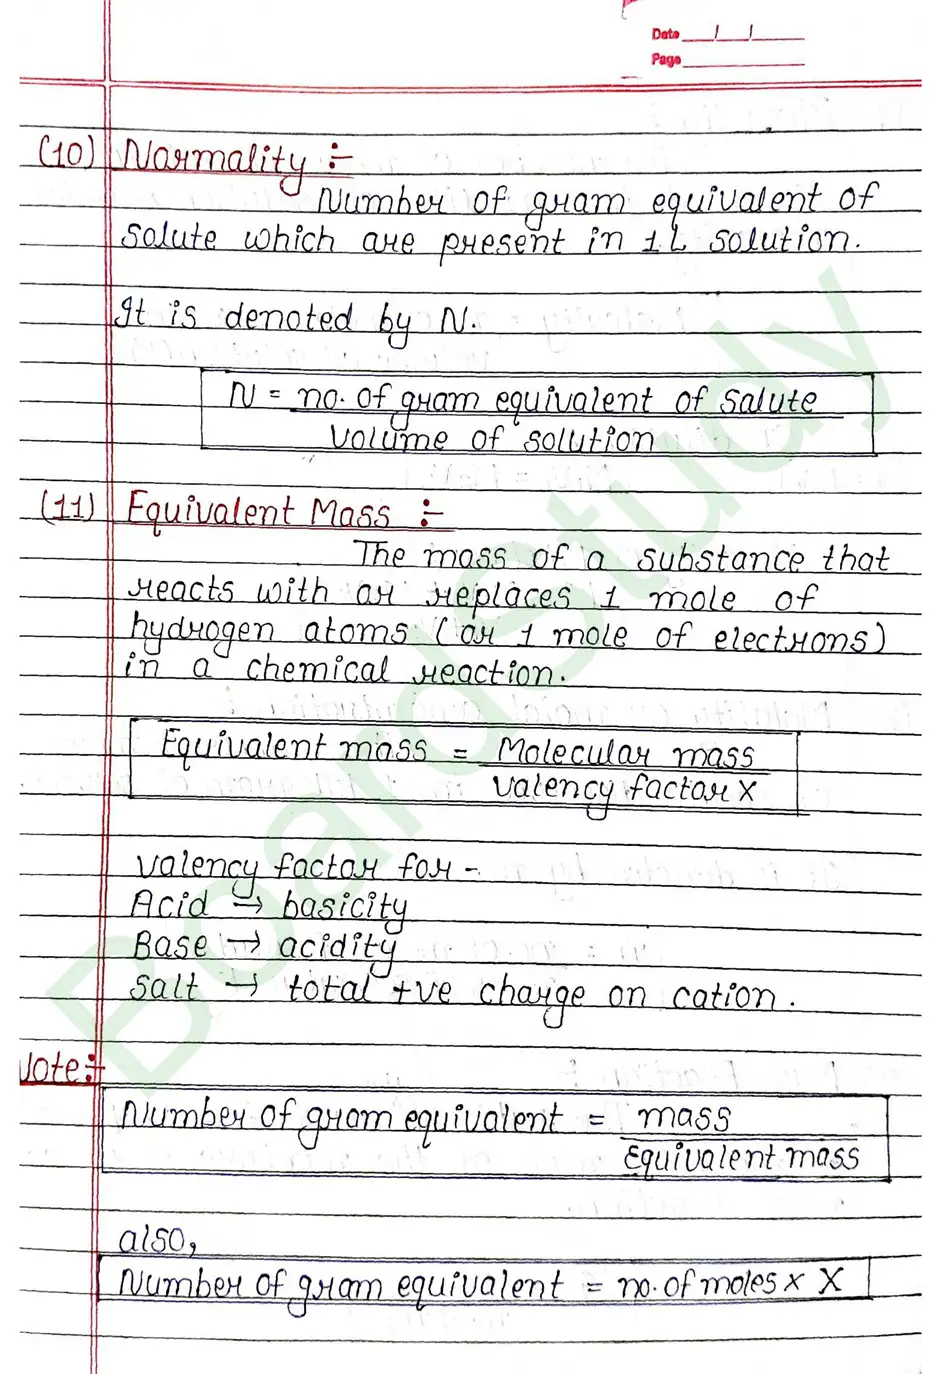 Date / /
Page
(10) Normality :-
Number of gram equivalent of
Solute which are present in 1L solution.
It is denoted by N.
N = no. of gram equivalent of Salute
Volume of solution
(11) Equivalent Mass :-
The mass of a substance that
reacts with or replaces 1 mole of
hydrogen atoms (or 1 mole of electrons)
in a chemical reaction.
Equivalent mass = Molecular mass
Valency factor X
Valency factor for -
Acid → basicity
Base → acidity
Salt → total +ve charge on cation.
Note:-
Number of gram equivalent = mass
Equivalent mass
also,
Number of gram equivalent = no. of moles x X
Boardstudy